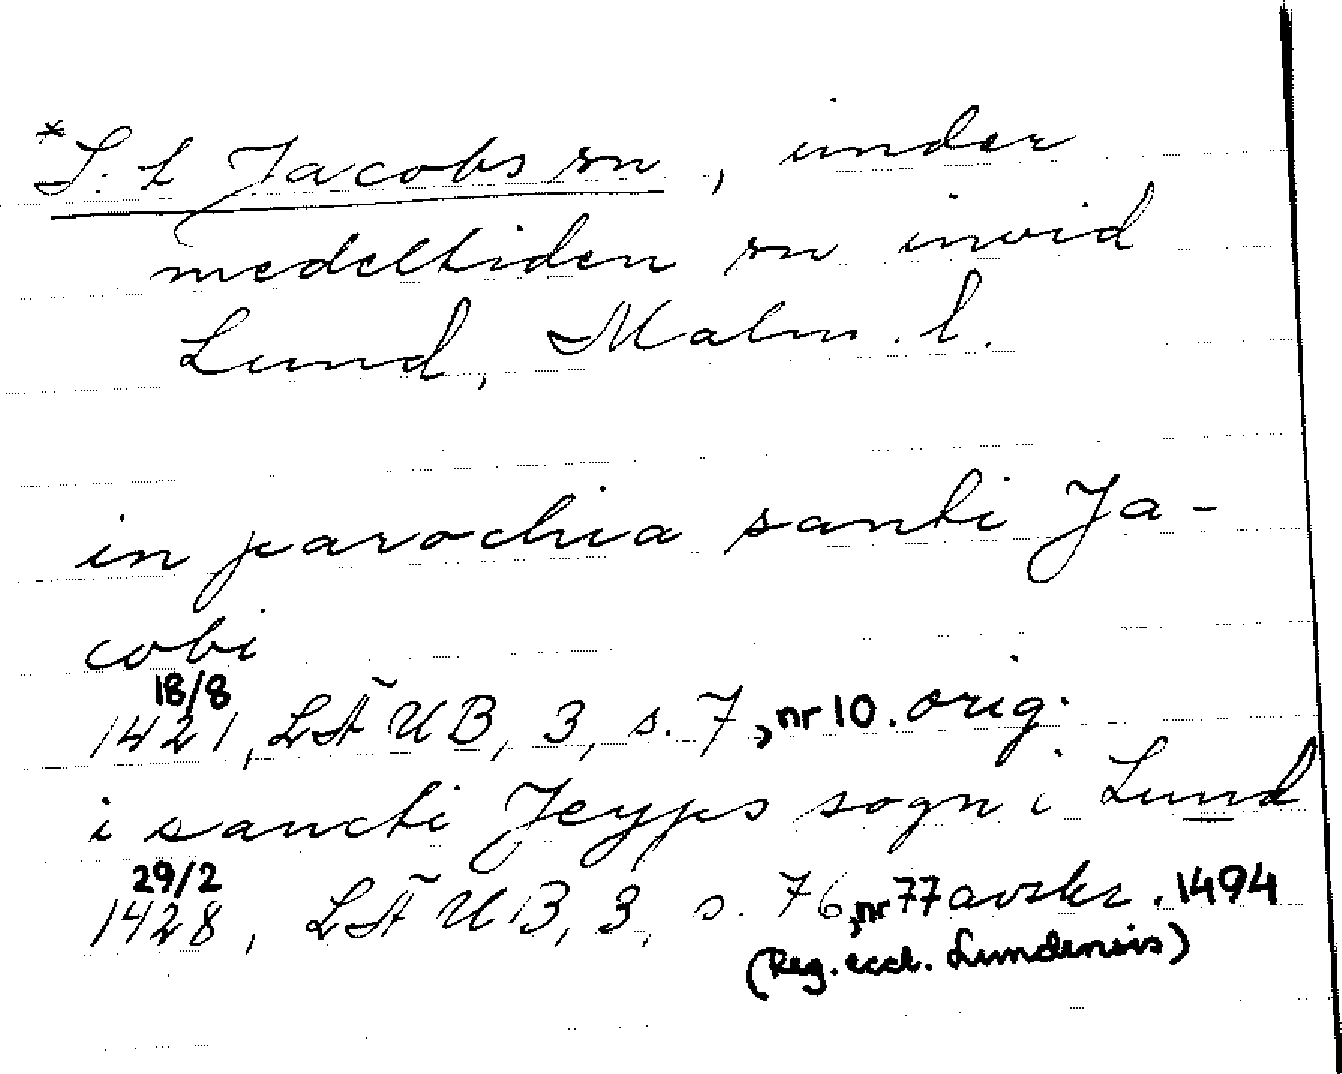 *S:t Jacobs sn, under
medeltiden sn invid
Lund, Malm. l.
in parochia santi Ja-
cobi
18/8
1421, LÄUB, 3, s. 7, nr 10. orig.
i sancti Jeyps sogn i Lund
29/2
1428, LÄUB, 3, s. 76, nr 77 avskr. 1494
(Reg. eccl. Lundensis)